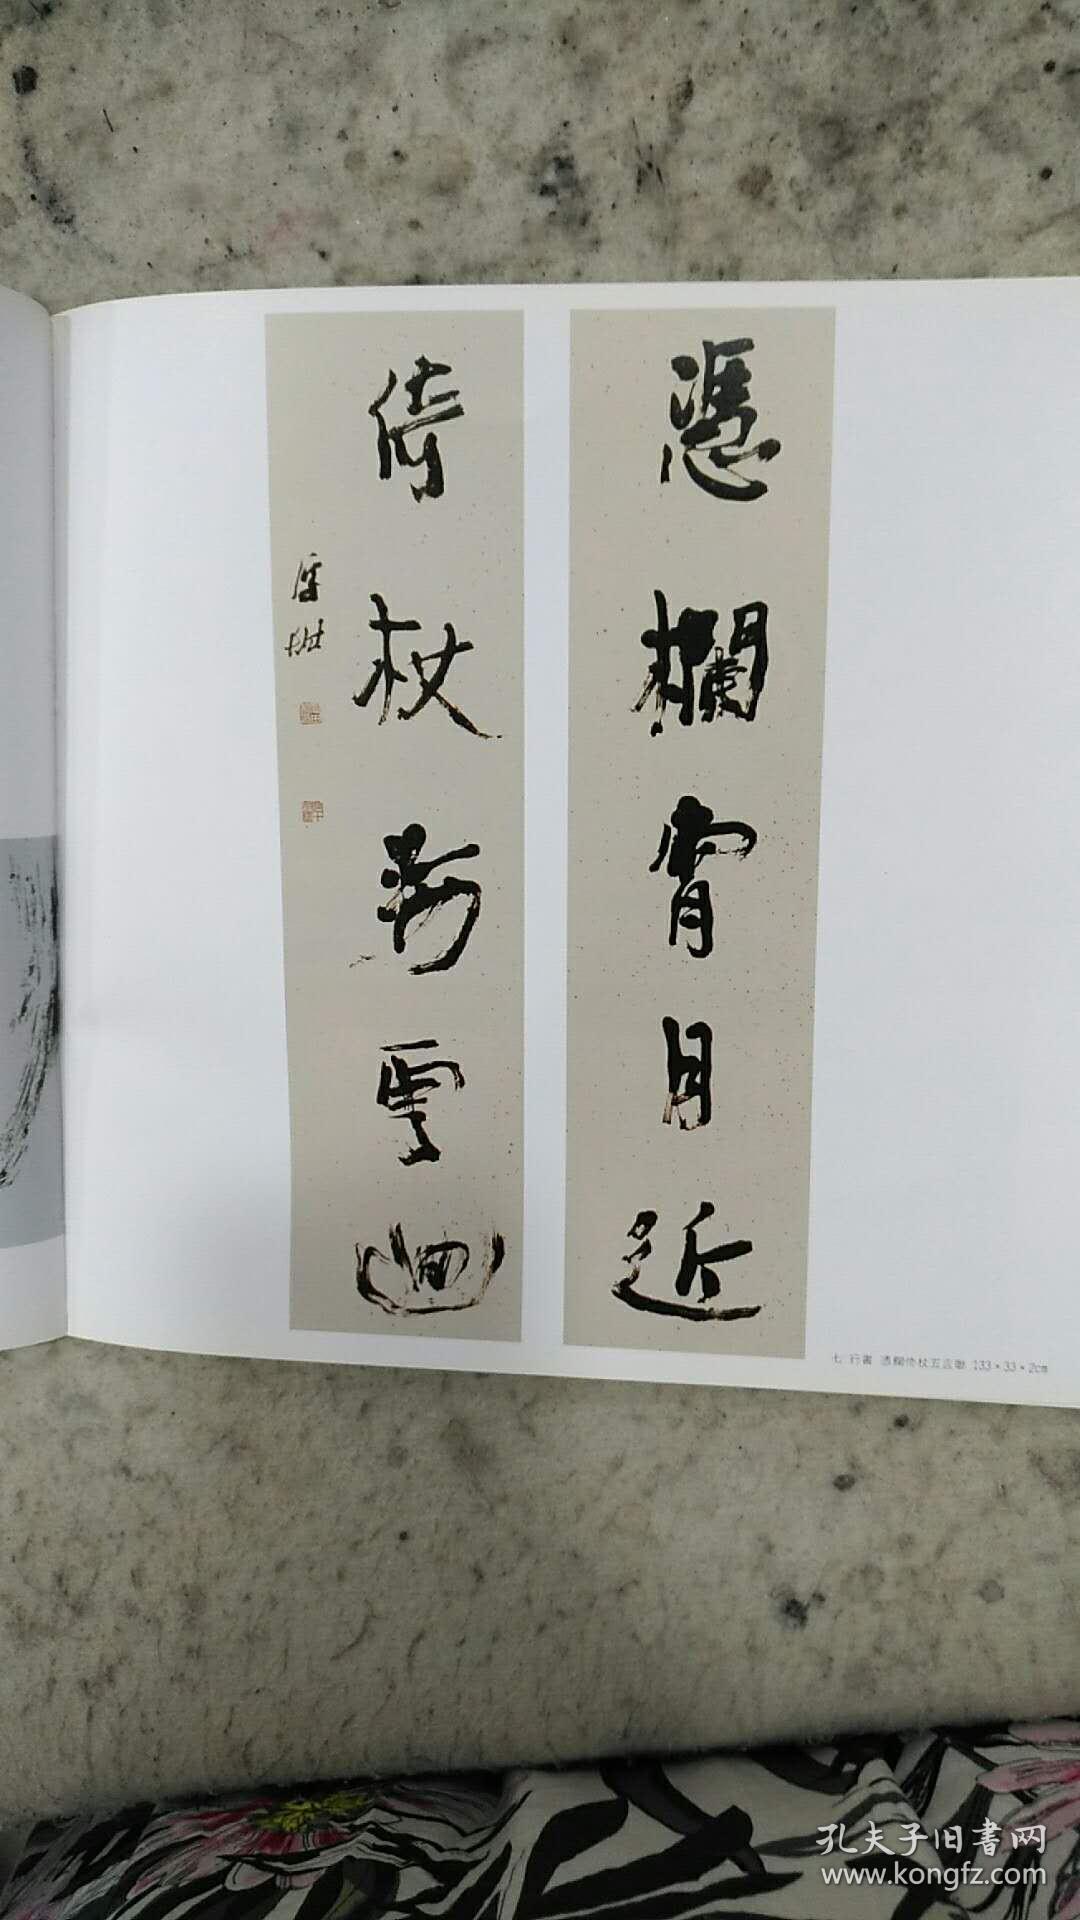 憑欄霄月近
倚杖雲迴
七 行書 憑欄倚杖五言聯 133×33×2cm
孔夫子旧書网
www.kongfz.com